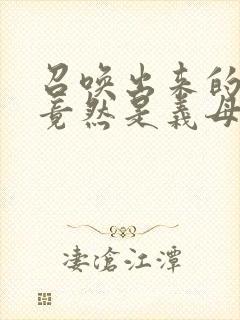 召唤出来的
竟然是义母
凄沧江潭